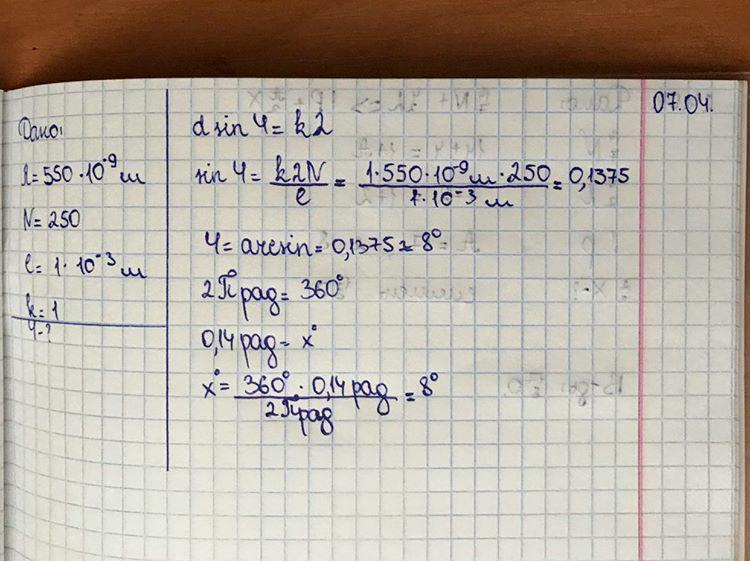 07.04.
Дано:
λ = 550 · 10⁻⁹ м
N = 250
l = 1 · 10⁻³ м
k = 1
φ - ?
d sin φ = kλ
sin φ = kλN / l = 1 · 550 · 10⁻⁹ м · 250 / 1 · 10⁻³ м = 0,1375
φ = arcsin = 0,1375 ≈ 8°
2π рад = 360°
0,14 рад = x°
x° = 360° · 0,14 рад / 2π рад = 8°